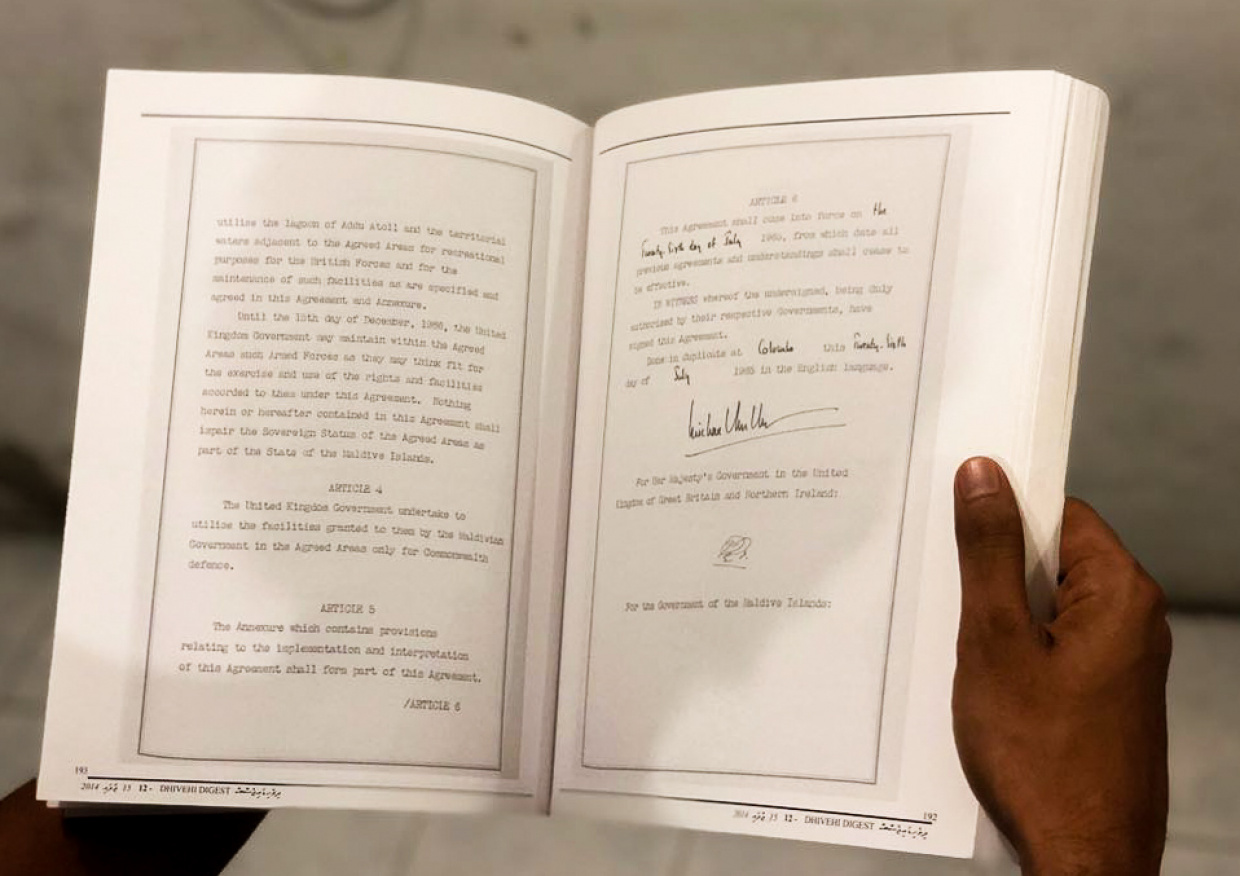 utilise the lagoon of Addu Atoll and the territorial
waters adjacent to the Agreed Areas for recreational
purposes for the British Forces and for the
maintenance of such facilities as are specified and
agreed in this Agreement and Annexure.
Until the 15th day of December, 1986, the United
Kingdom Government may maintain within the Agreed
Areas such Armed Forces as they may think fit for
the exercise and use of the rights and facilities
accorded to them under this Agreement. Nothing
herein or hereafter contained in this Agreement shall
impair the Sovereign Status of the Agreed Areas as
part of the State of the Maldive Islands.
ARTICLE 4
The United Kingdom Government undertake to
utilise the facilities granted to them by the Maldivian
Government in the Agreed Areas only for Commonwealth
defence.
ARTICLE 5
The Annexure which contains provisions
relating to the implementation and interpretation
of this Agreement shall form part of this Agreement.
/ARTICLE 6
193
2014 ޖުލައި 15 12 - DHIVEHI DIGEST ދިވެހިޑައިޖެސްޓް
ARTICLE 6
This Agreement shall come into force on the
Twenty-Sixth day of July 1965, from which date all
previous agreements and understandings shall cease to
be effective.
IN WITNESS whereof the undersigned, being duly
authorised by their respective Governments, have
signed this Agreement.
Done in duplicate at Colombo this Twenty-Sixth
day of July 1965 in the English language.
For Her Majesty's Government in the United
Kingdom of Great Britain and Northern Ireland:
For the Government of the Maldive Islands:
192
2014 ޖުލައި 15 12 - DHIVEHI DIGEST ދިވެހިޑައިޖެސްޓް